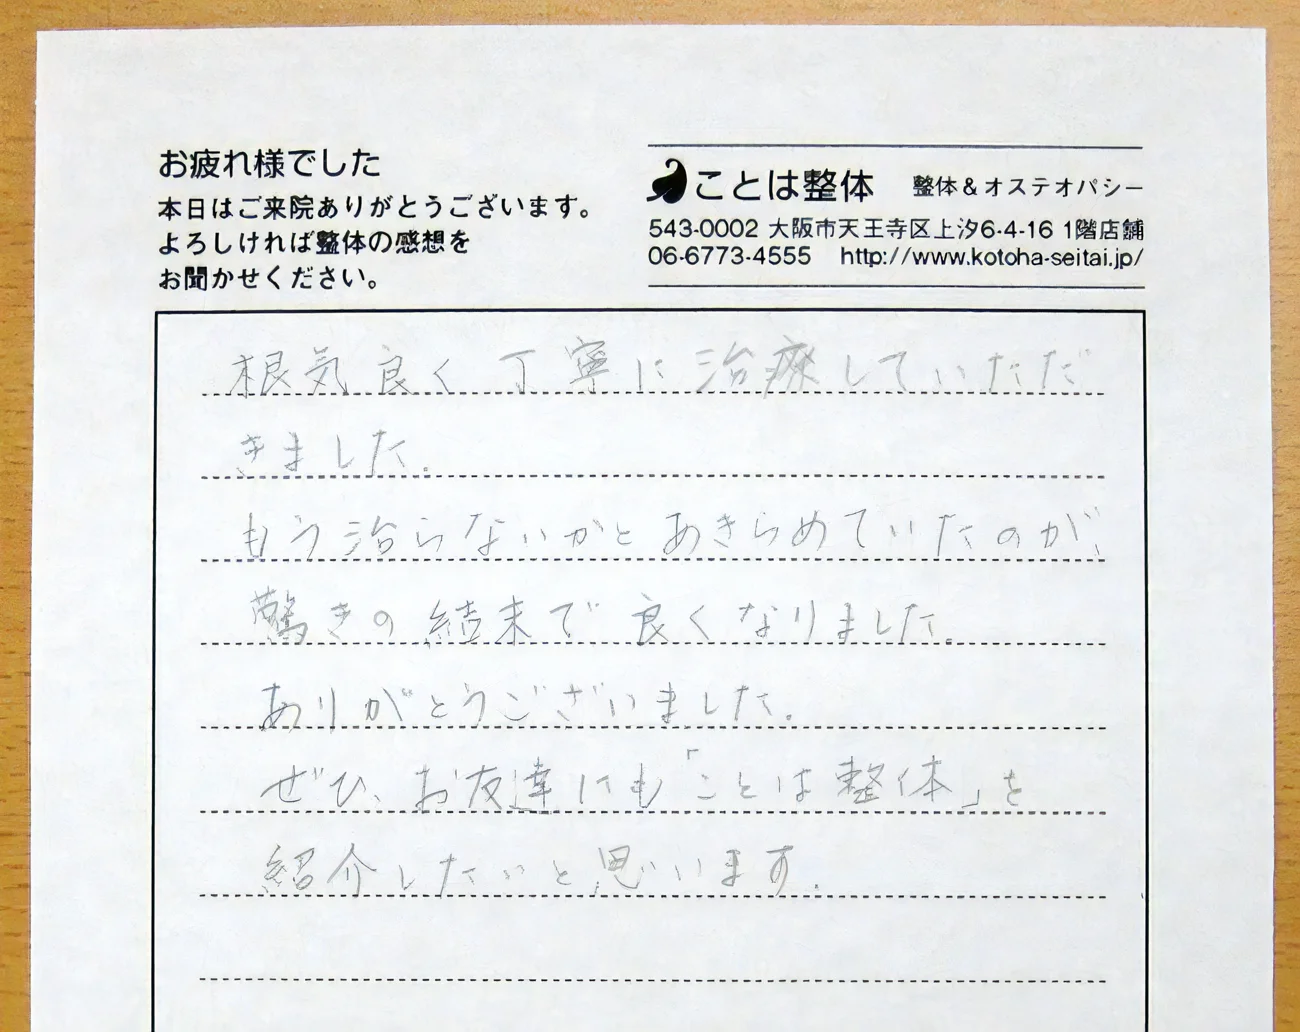 お疲れ様でした
本日はご来院ありがとうございます。
よろしければ整体の感想を
お聞かせください。
ことは整体 整体&オステオパシー
543-0002 大阪市天王寺区上汐6-4-16 1階店舗
06-6773-4555 http://www.kotoha-seitai.jp/
根気良く丁寧に治療していただ
きました.
もう治らないかとあきらめていたのが、
驚きの結末で良くなりました.
ありがとうございました.
ぜひ、お友達にも「ことは整体」を
紹介したいと思います.